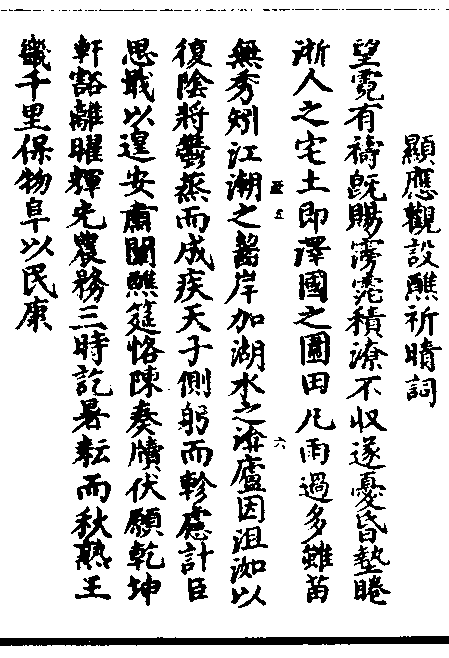 顯應觀設醮祈晴詞
望霓有禱旣賜霶霓積潦不収遂憂昏墊睠
浙人之宅土即澤國之圃田凡雨過多雖苗
無秀矧江潮之齧岸加湖水之渰廬因沮洳以
復陰將鬱蒸而成疾天子側躬而軫慮計臣
思戢以遑安肅開醮筵恪陳奏牘伏願乾坤
軒豁離曜輝光農務三時訖暑耘而秋熟王
畿千里保物阜以民康